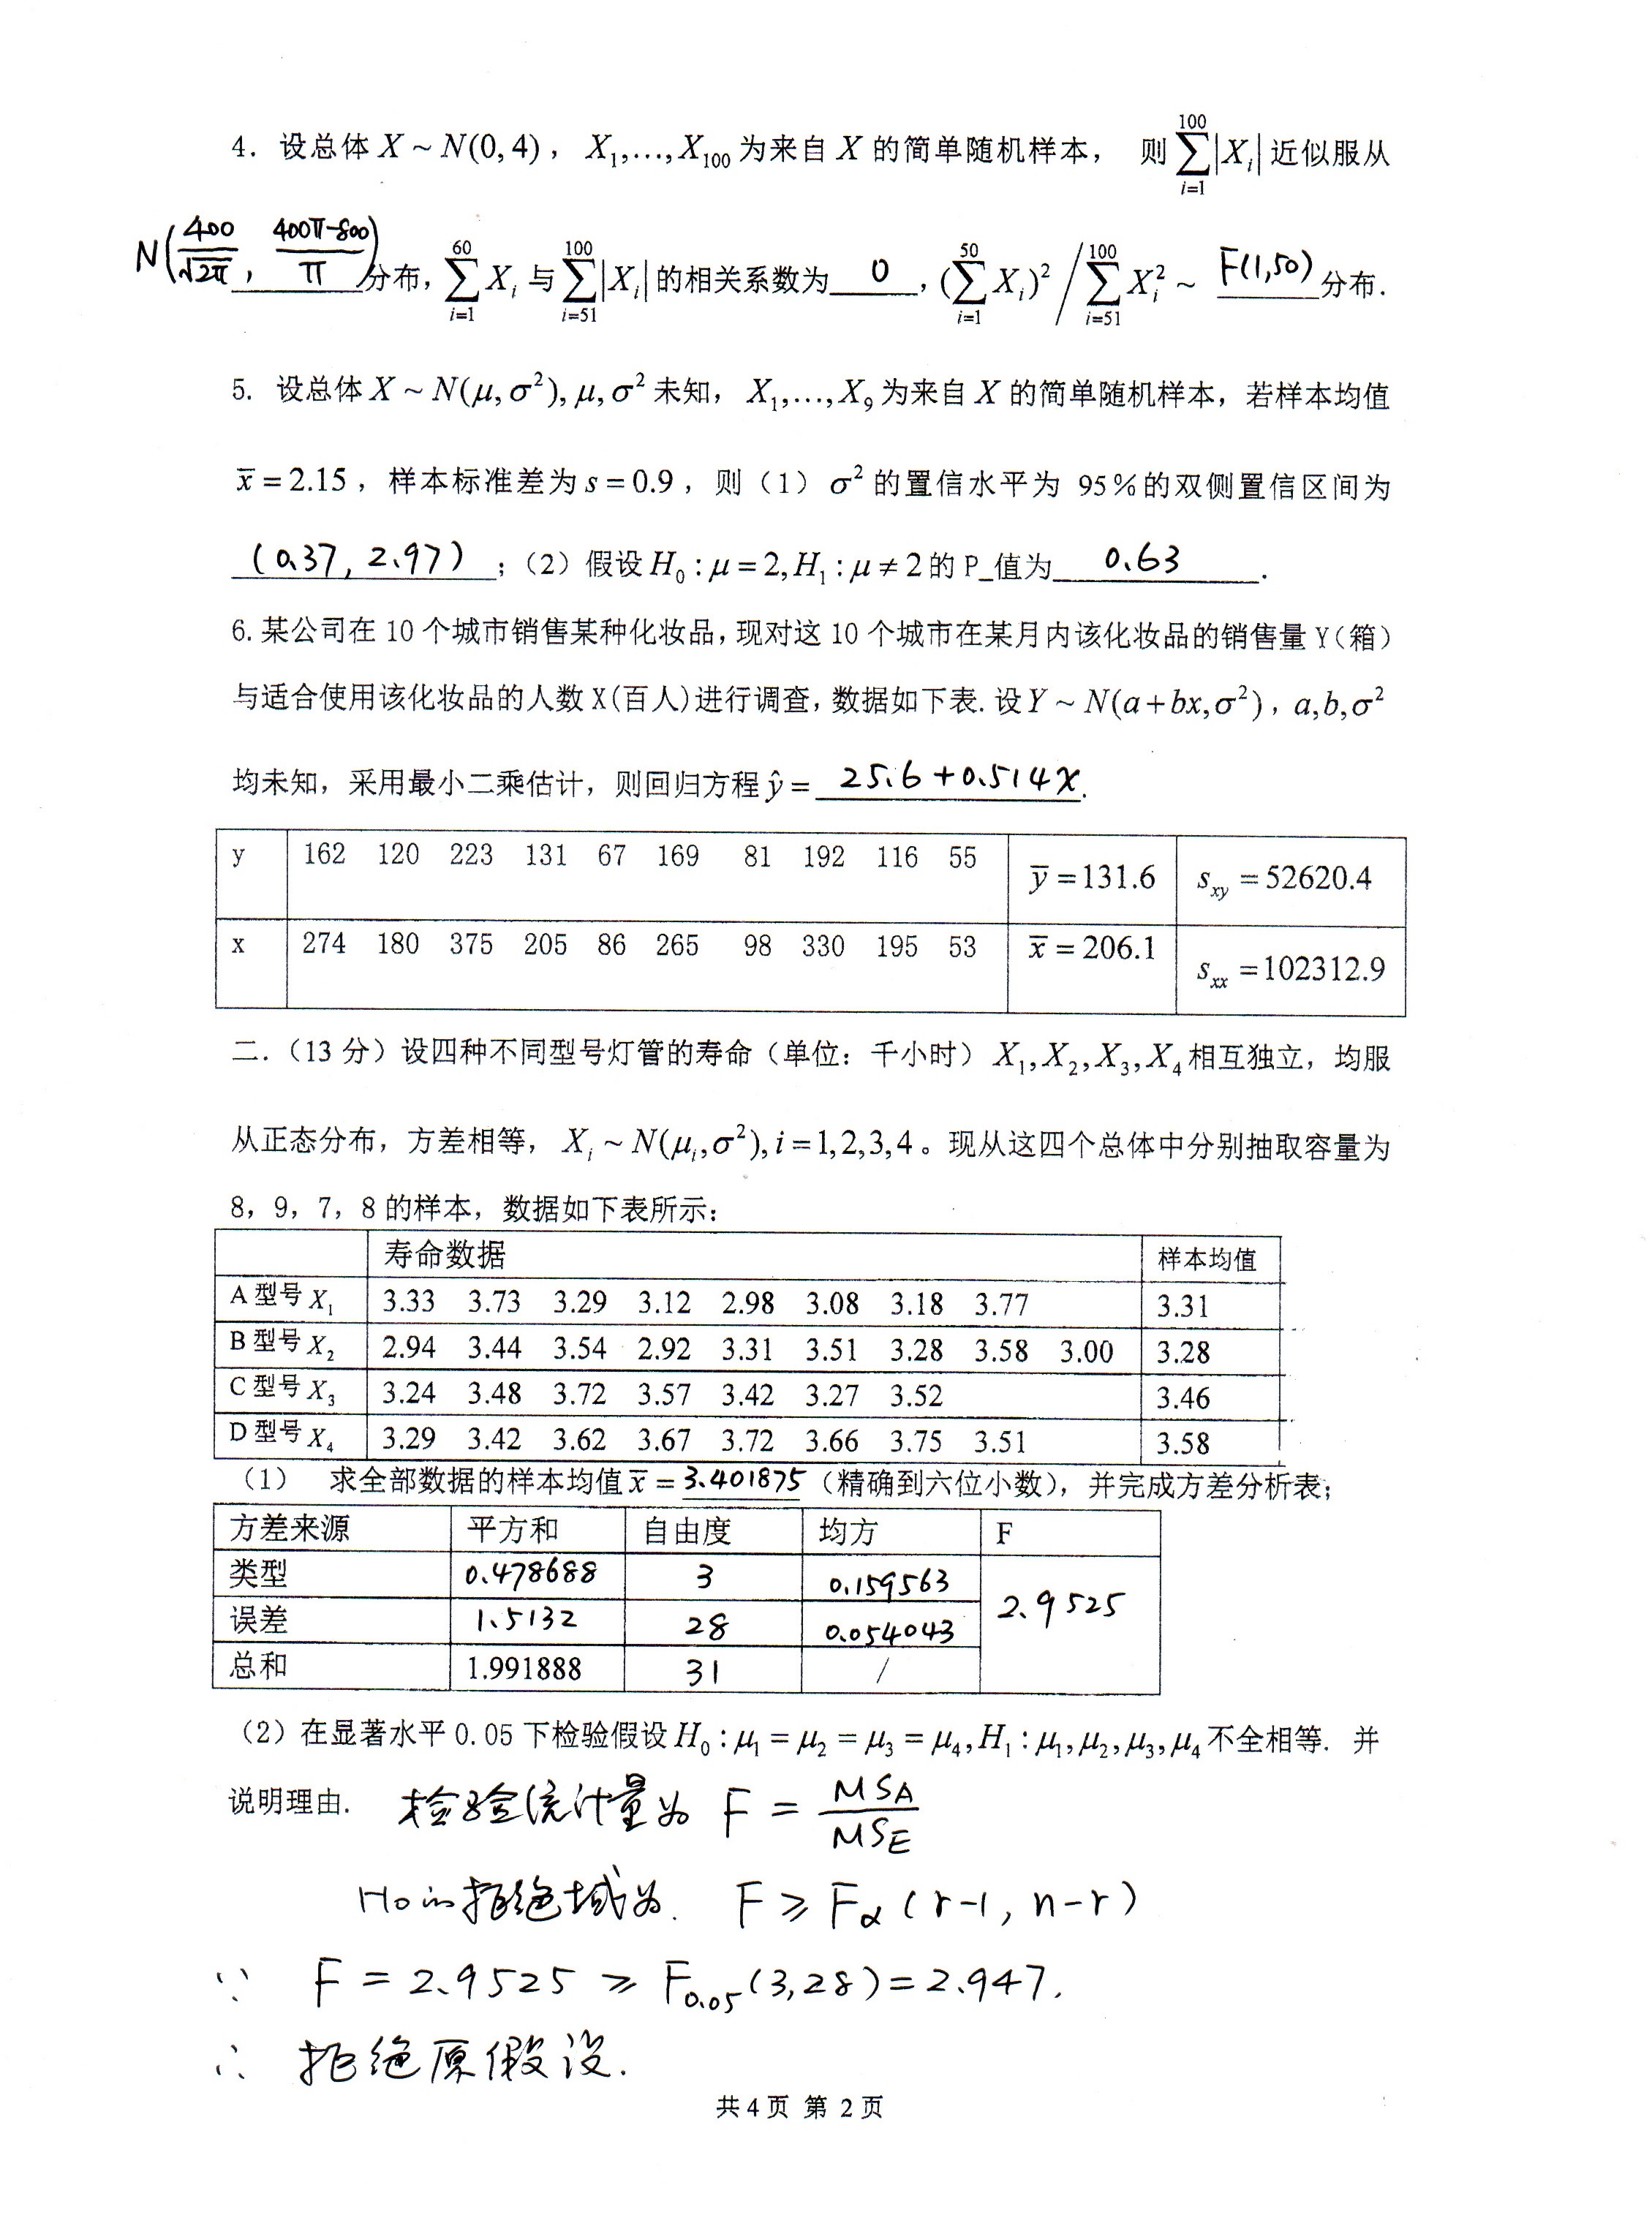 4. 设总体 X ~ N(0,4), X₁,…,X₁₀₀ 为来自 X 的简单随机样本, 则 \sum_{i=1}^{100}|X_i| 近似服从
N(\frac{400}{\sqrt{2π}}, \frac{400π-800}{π}) 分布, \sum_{i=1}^{60} X_i 与 \sum_{i=51}^{100}|X_i| 的相关系数为 0 , (\sum_{i=1}^{50} X_i)² / \sum_{i=51}^{100} X_i² ~ F(1,50) 分布.
5. 设总体 X ~ N(μ,σ²), μ,σ² 未知, X₁,…,X₉ 为来自 X 的简单随机样本, 若样本均值
x̄ = 2.15 , 样本标准差为 s = 0.9 , 则 (1) σ² 的置信水平为 95%的双侧置信区间为
(0.37, 2.97) ; (2) 假设 H₀ : μ = 2, H₁ : μ ≠ 2 的 P_值为 0.63 .
6. 某公司在 10 个城市销售某种化妆品, 现对这 10 个城市在某月内该化妆品的销售量 Y(箱)
与适合使用该化妆品的人数 X(百人)进行调查, 数据如下表. 设 Y ~ N(a+bx,σ²), a,b,σ²
均未知, 采用最小二乘估计, 则回归方程 ŷ = 25.6+0.514x .
y 162 120 223 131 67 169 81 192 116 55 ȳ =131.6 s_{xy} = 52620.4
x 274 180 375 205 86 265 98 330 195 53 x̄ = 206.1 s_{xx} =102312.9
二. (13 分) 设四种不同型号灯管的寿命 (单位: 千小时) X₁,X₂,X₃,X₄ 相互独立, 均服
从正态分布, 方差相等, X_i ~ N(μ_i,σ²), i =1,2,3,4 。现从这四个总体中分别抽取容量为
8, 9, 7, 8 的样本, 数据如下表所示:
寿命数据 样本均值
A 型号 X₁ 3.33 3.73 3.29 3.12 2.98 3.08 3.18 3.77 3.31
B 型号 X₂ 2.94 3.44 3.54 2.92 3.31 3.51 3.28 3.58 3.00 3.28
C 型号 X₃ 3.24 3.48 3.72 3.57 3.42 3.27 3.52 3.46
D 型号 X₄ 3.29 3.42 3.62 3.67 3.72 3.66 3.75 3.51 3.58
(1) 求全部数据的样本均值 x̄ = 3.401875 (精确到六位小数), 并完成方差分析表;
方差来源 平方和 自由度 均方 F
类型 0.478688 3 0.159563 2.9525
误差 1.5132 28 0.054043
总和 1.991888 31 /
(2) 在显著水平 0.05 下检验假设 H₀ : μ₁ = μ₂ = μ₃ = μ₄, H₁ : μ₁,μ₂,μ₃,μ₄ 不全相等. 并
说明理由. 检验统计量为 F = \frac{MS_A}{MS_E}
H₀的拒绝域为. F ≥ F_α(r-1, n-r)
∵ F = 2.9525 ≥ F_{0.05}(3,28) = 2.947.
∴ 拒绝原假设.
共 4 页 第 2 页